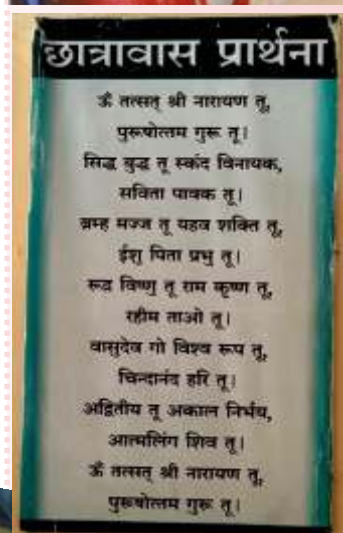 छात्रावास प्रार्थना
ऊँ तत्सत् श्री नारायण तू,
पुरूषोत्तम गुरू तू।
सिद्ध बुद्ध तू स्कंद विनायक,
सविता पावक तू।
ब्रम्ह मज्ज तू यहव शक्ति तू,
ईशु पिता प्रभु तू।
रूद्र विष्णु तू राम कृष्ण तू,
रहीम ताओ तू।
वासुदेव गो विश्व रूप तू,
चिन्दानंद हरि तू।
अद्वितीय तू अकाल निर्भय,
आत्मलिंग शिव तू।
ऊँ तत्सत् श्री नारायण तू,
पुरूषोत्तम गुरू तू।